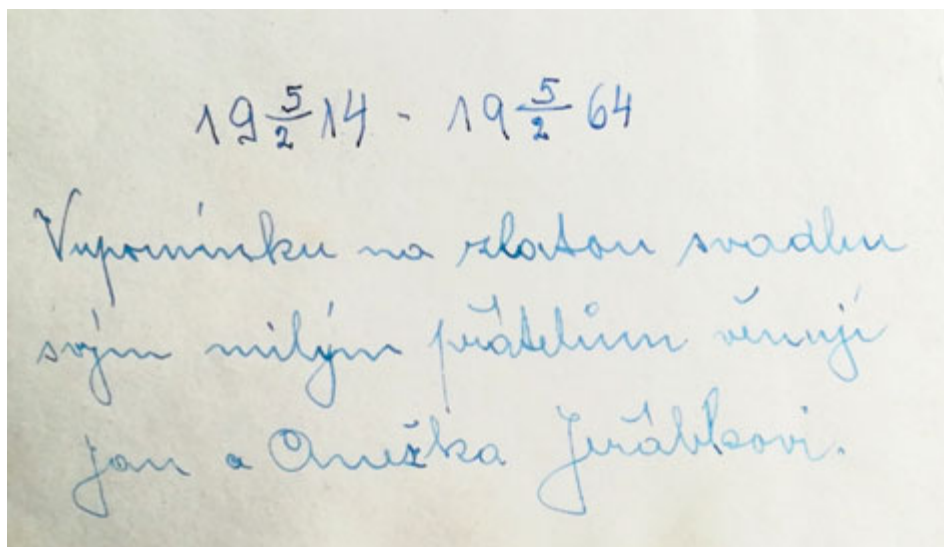 19 5/2 14 - 19 5/2 64
Vzpomínku na zlatou svadbu
svým milým přátelům věnují
Jan a Anežka Jeřábkovi.